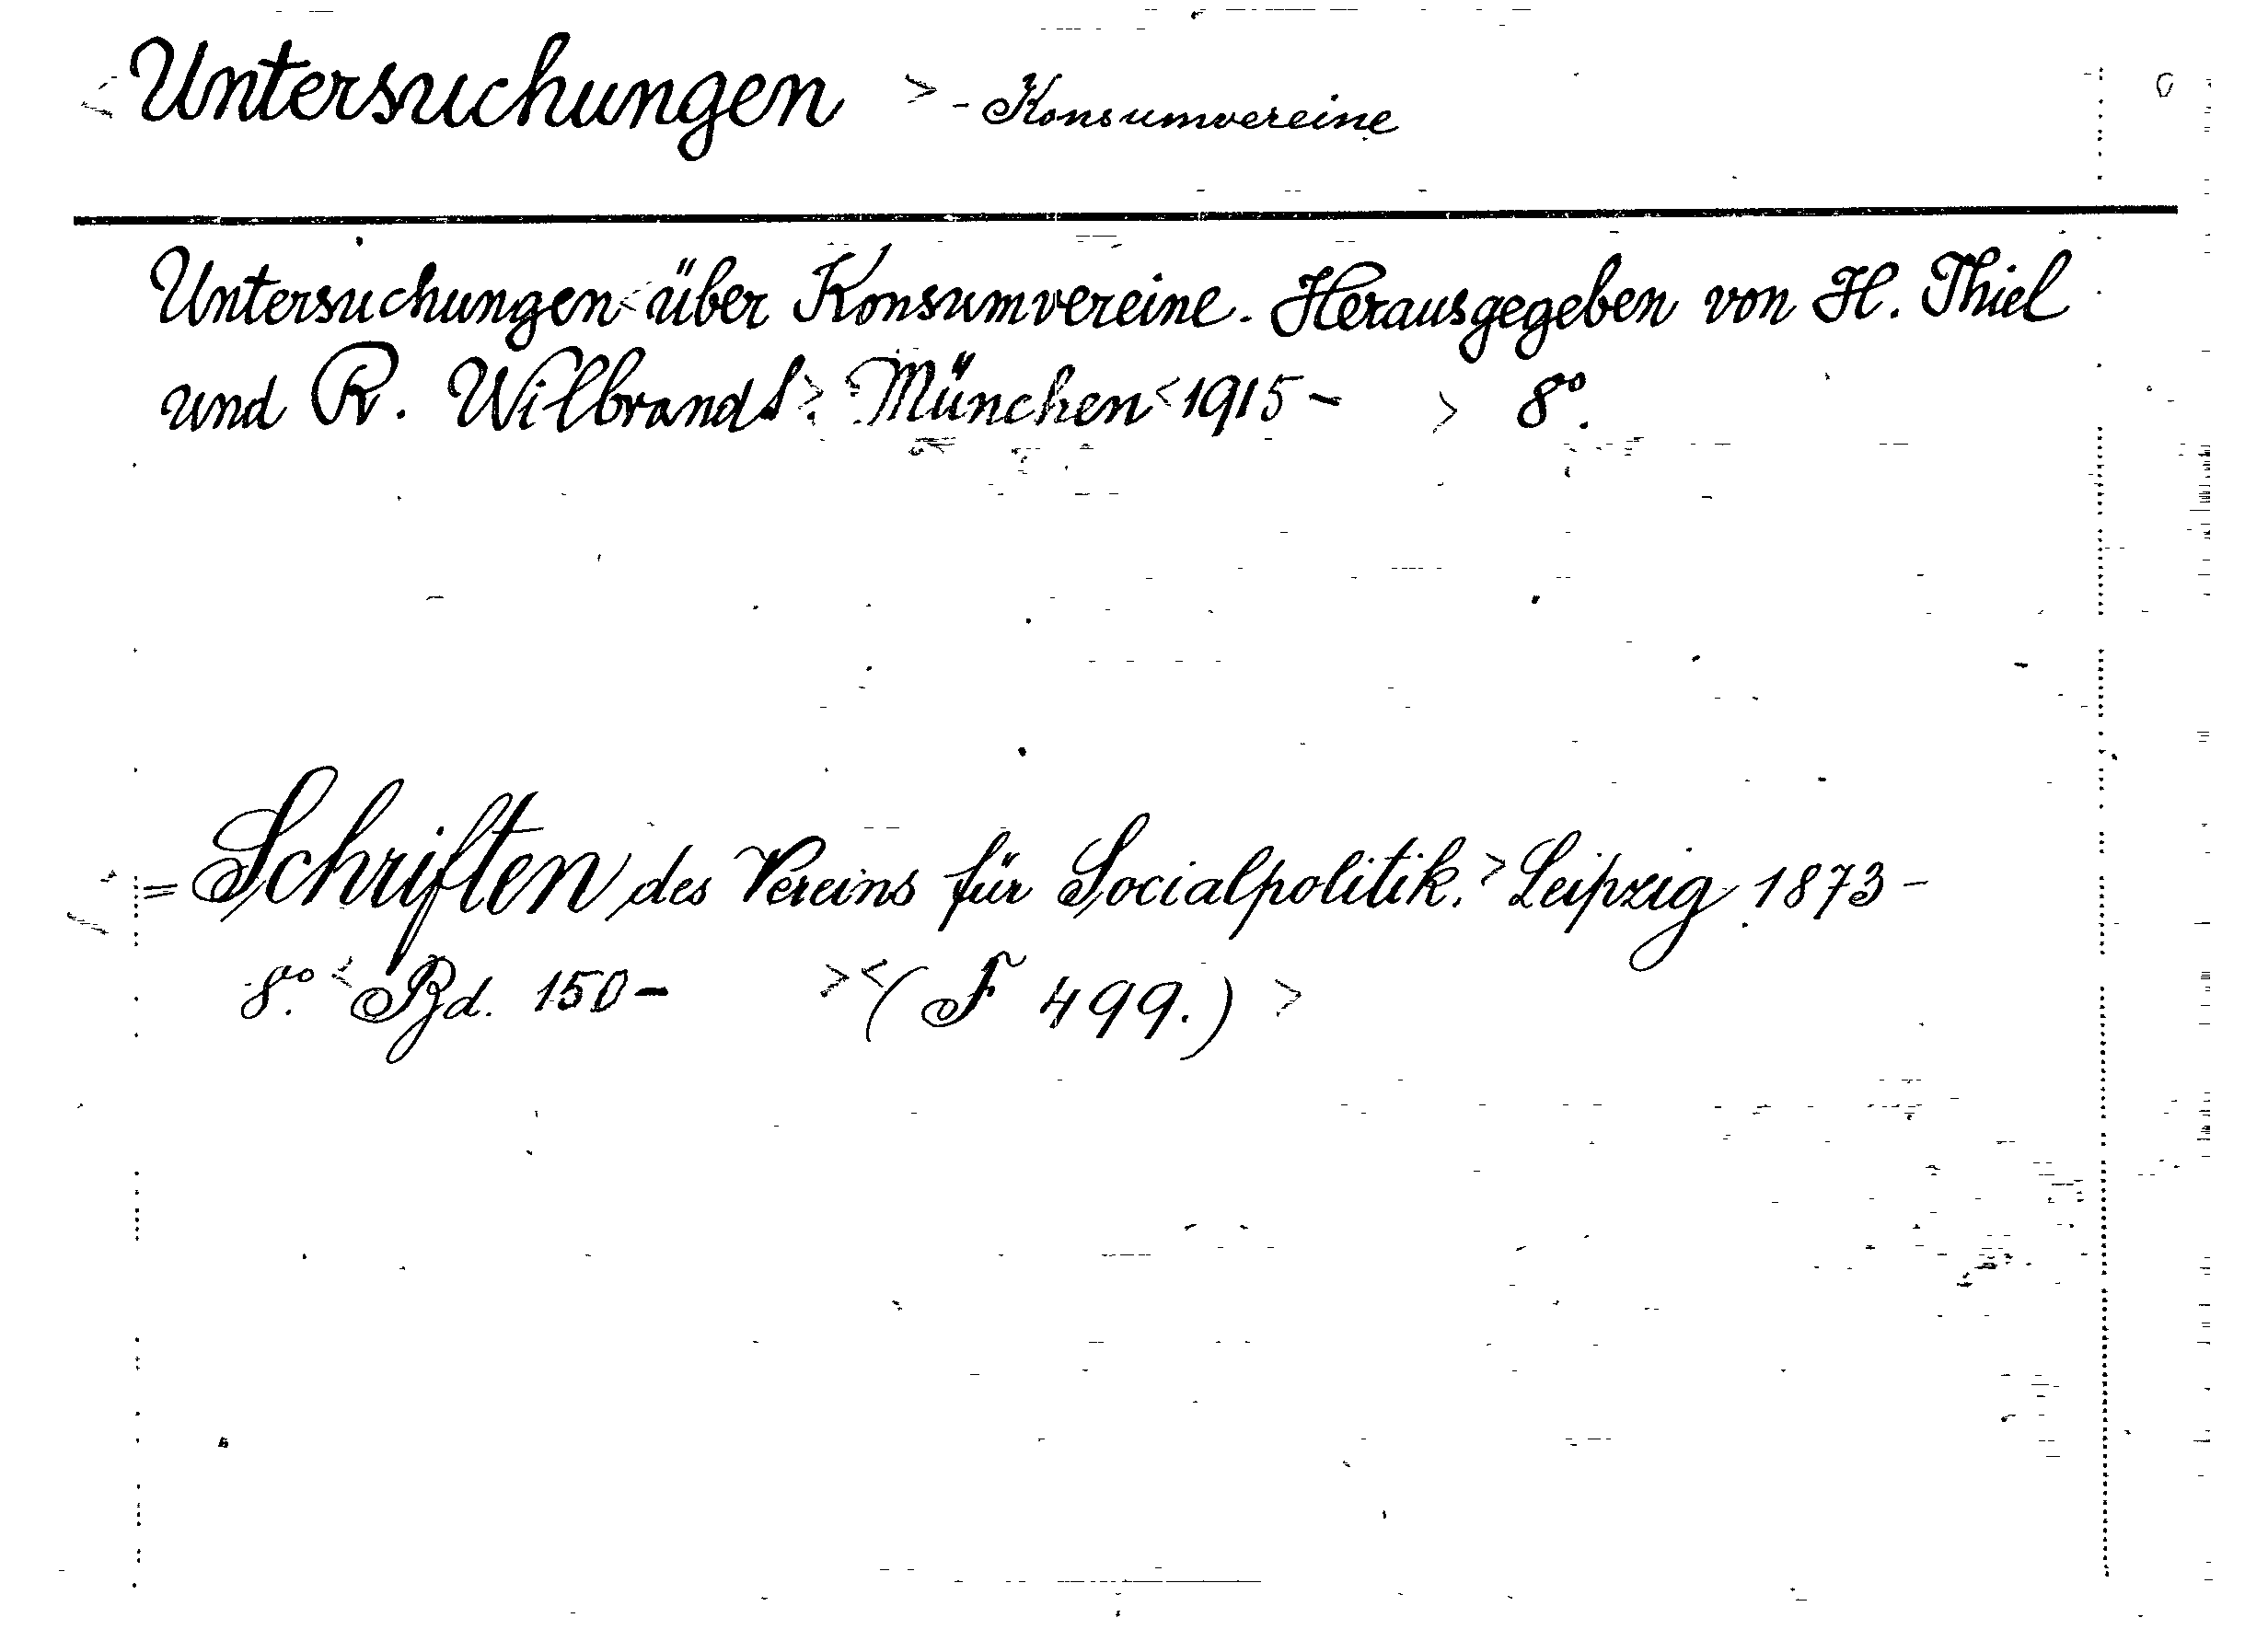 < Untersuchungen > - Konsumvereine
Untersuchungen < über Konsumvereine. Herausgegeben von H. Thiel
und R. Wilbrandt >. München < 1915 - > 8°.
= Schriften des Vereins für Socialpolitik. > Leipzig 1873 -
8°. < Bd. 150 - > < (F 499.) >